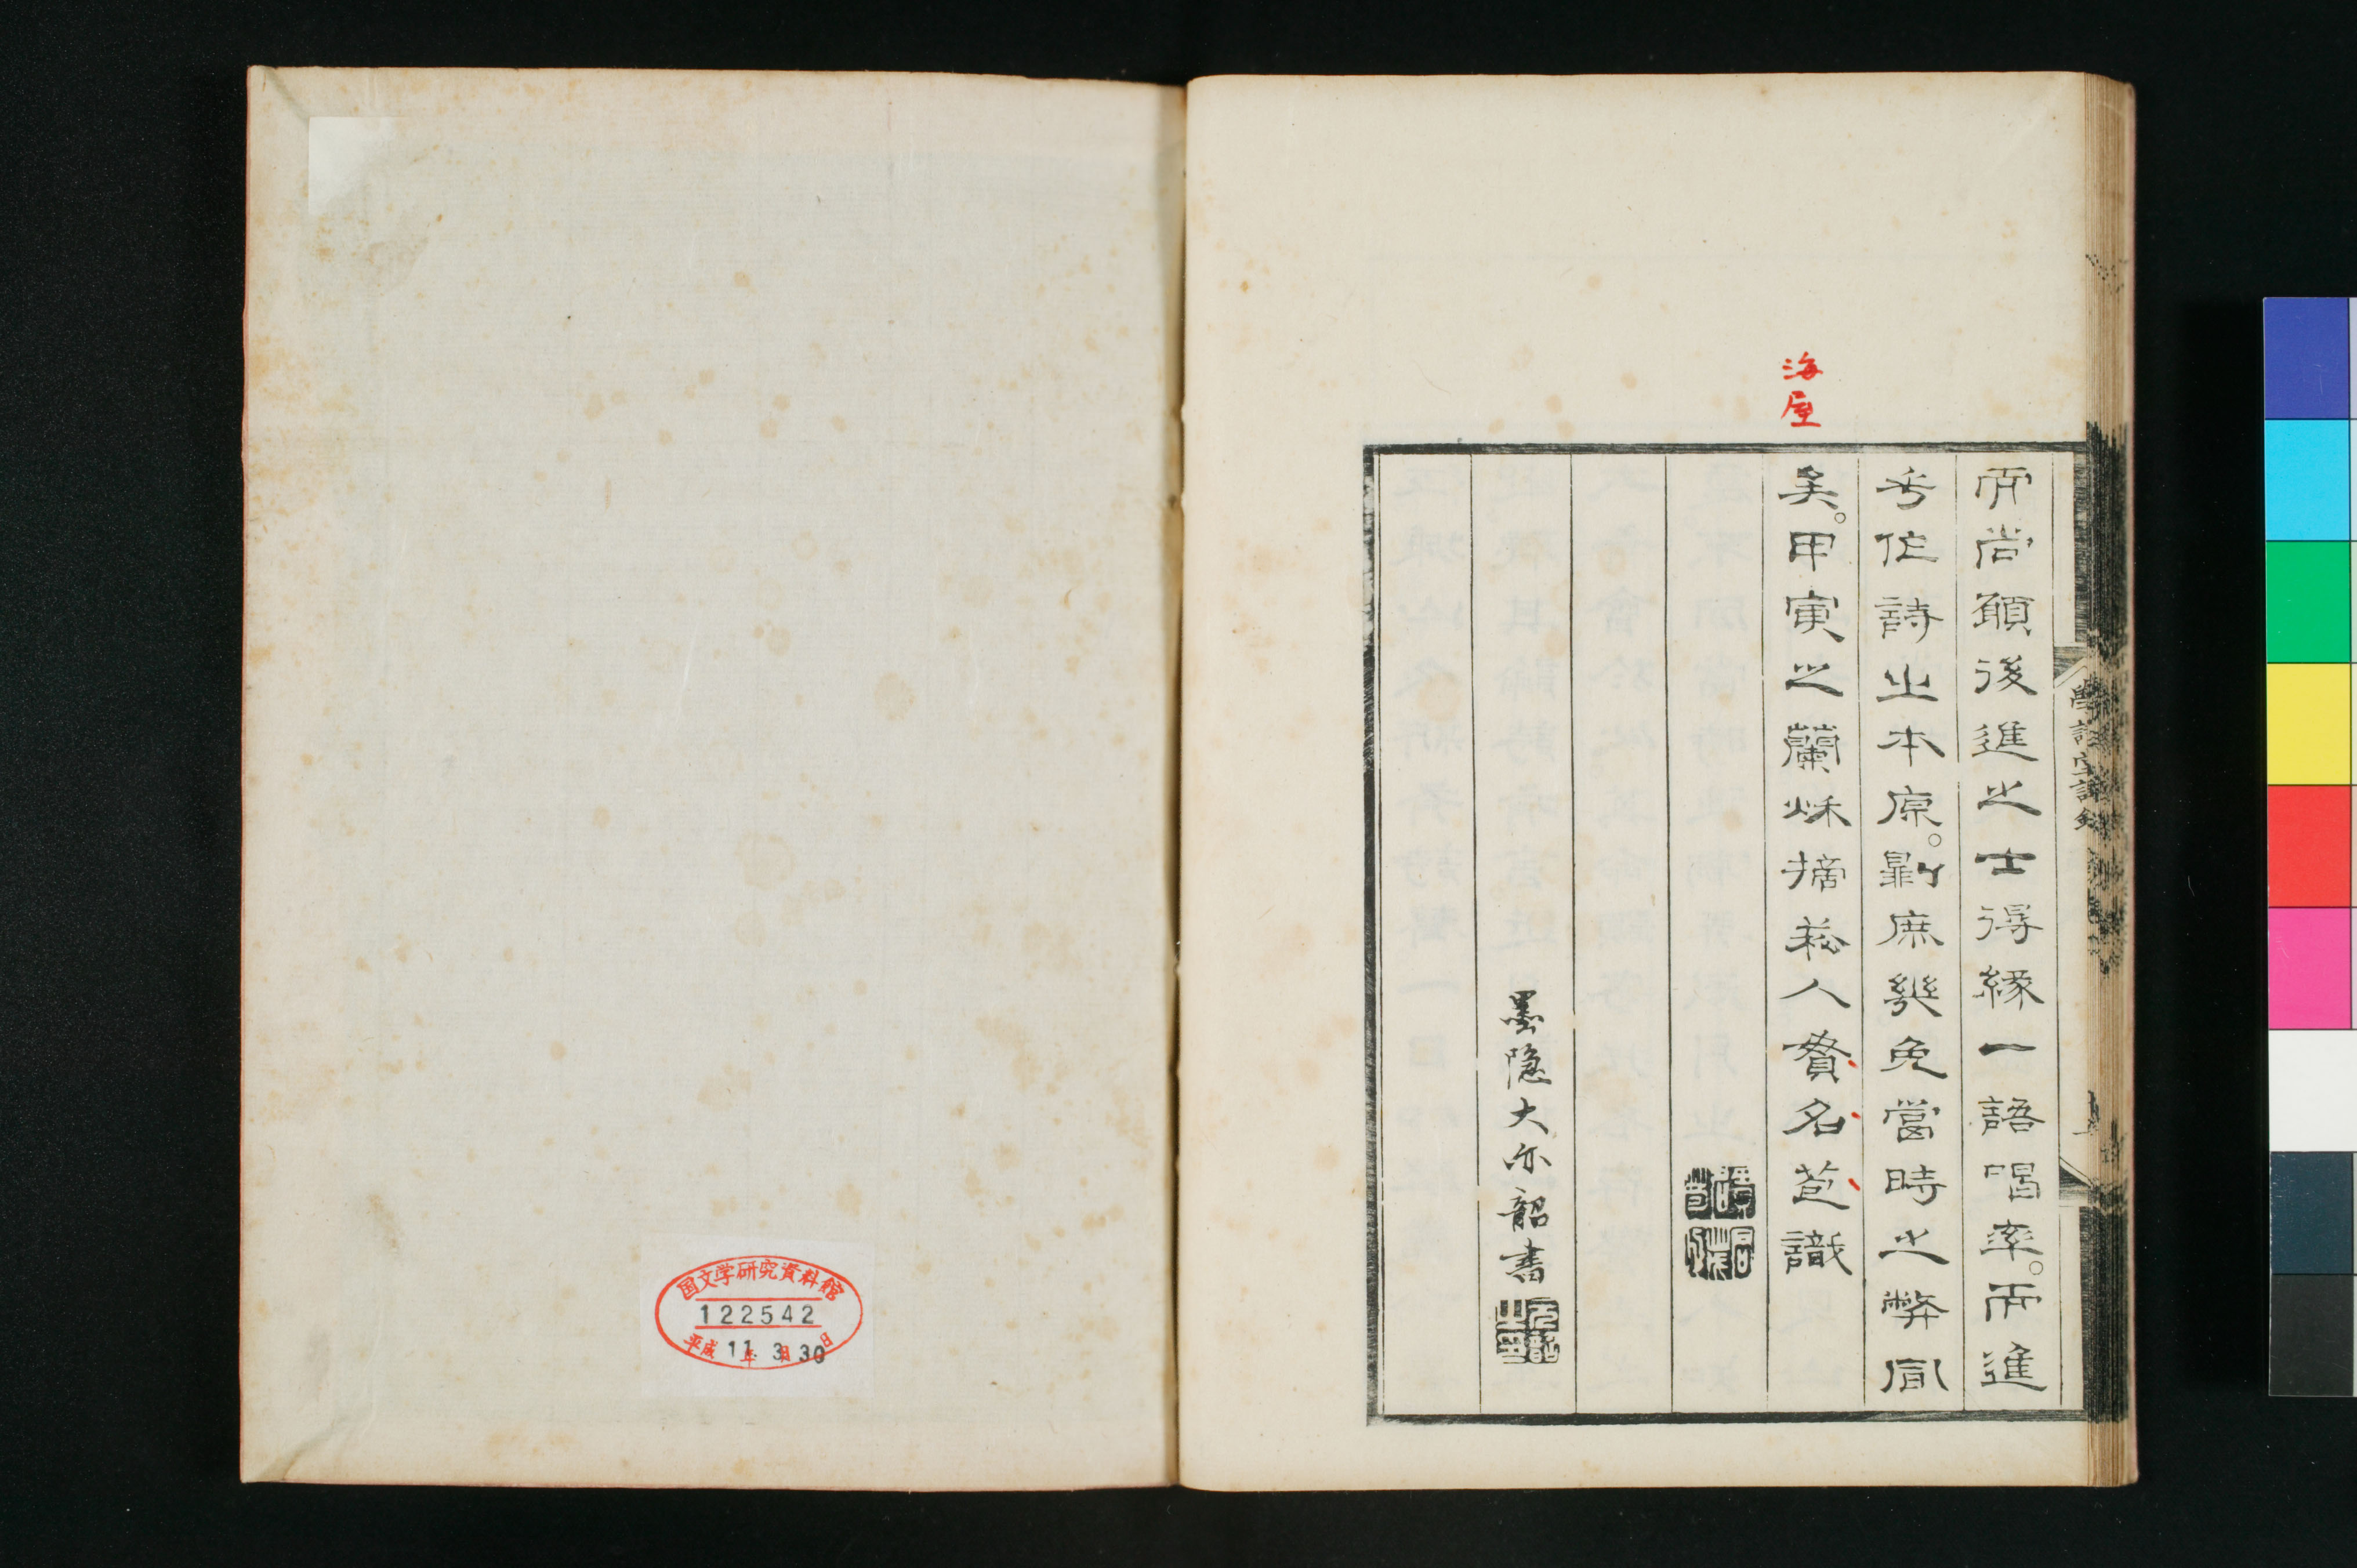 海屋
而尚願後進之士得緣一語唱率。而進
乎作詩之本原。則庶幾免當時之弊風
矣。甲寅之蘭秋摘菘人貫名苞識
墨隠大尓韶書
国文学研究資料館
122542
平成11年3月30日